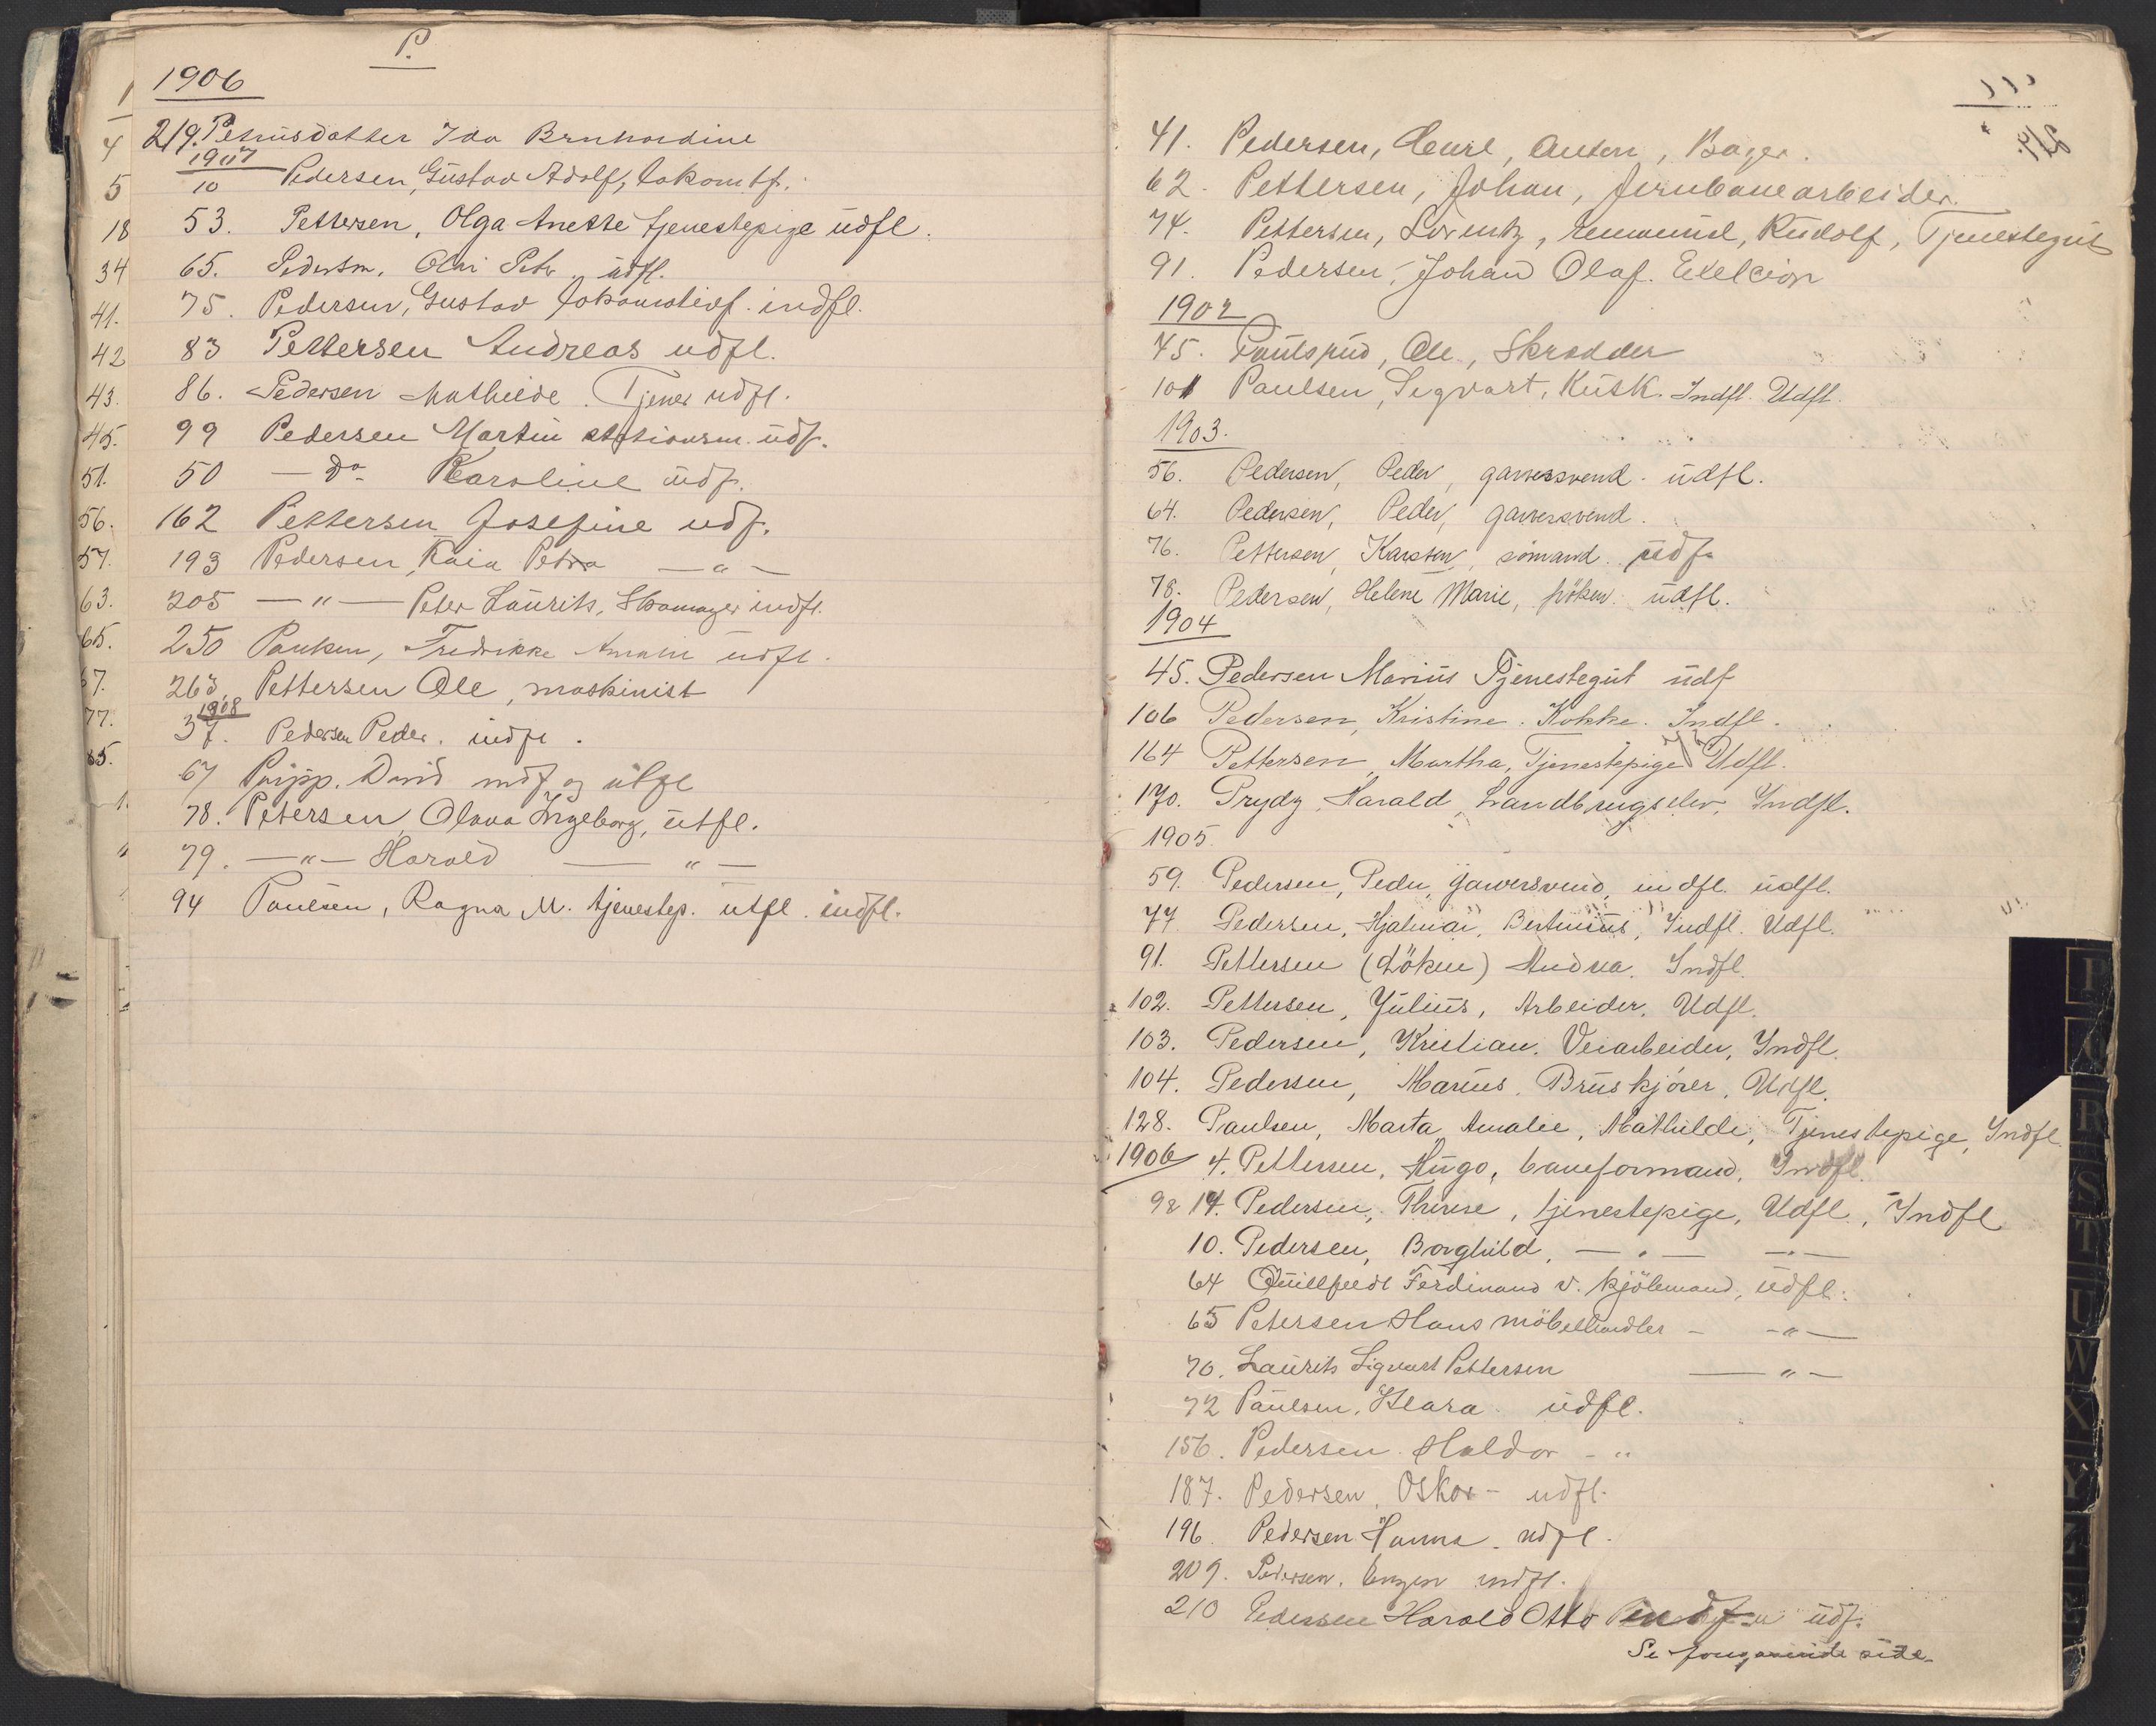 P.
1906
219. Petrusdatter Ida Brnhardine
1907
10 Pedersen, Gustav Adolf, lokomtf.
53. Pettersen, Olga Anette tjenestepige udfl.
65. Pedersen, Petr. udfl.
75. Pedersen, Gustav lokomotivf. indfl.
83 Pettersen Andreas udfl.
86. Pedersen Mathilde. Tjener udfl.
99 Pedersen Martin stationsm. udf.
50 — do - Karoline udf.
162 Pettersen Josefine udf.
193 Pedersen, Kaia Petra — " —
205 — " — Peter Laurits, Skomager indfl.
250 Paulsen, Fredrikke udfl.
263. Pettersen Ole, maskinist
1908
37. Pedersen Peder. indfl.
67 David indf og utfl
78. Petersen, Olava Ingeborg, utfl.
79. — " — Harald — " —
94 Paulsen, Ragna M. tjenestep. utfl. indfl.
4
5
18
34
41.
42
43.
45.
51.
56.
57.
63.
65.
67.
77.
85.
41. Pedersen, Anton, Bager.
62. Pettersen, Johan, Jernbanearbeider.
74. Pettersen, Lorentz, Rudolf, Tjenestegut
91. Pedersen, Johan Olaf.
1902
45. Ole, Skrædder
101 Paulsen, Sigvart, Kusk. Indfl. Udfl.
1903.
56. Pedersen, Peder, garversvend. udfl.
64. Pedersen, Peder, garversvend.
76. Pettersen, Karsten, sömand. udf.
78. Pedersen, Helene Marie, fröken. udfl.
1904
45. Pedersen Marius Tjenestegut udf
106 Pedersen, Kristine. Kokke. Indfl.
164 Pettersen, Martha, Tjenestepige Udfl.
170. Prydz Harald, Landbrugselev. Indfl.
1905.
59. Pedersen, Peder, garversvend, indfl. udfl.
77 Pedersen, Hjalmar, Bertinius, Indfl. Udfl.
91. Pettersen (Löken) Andrea. Indfl.
102. Pettersen, Julius, Arbeider. Udfl.
103. Pedersen, Kristian. Veiarbeider, Indfl.
104. Pedersen, Marius. Bruskjører, Udfl.
128. Paulsen, Marta, Amalie, Mathilde, Tjenestepige, Indfl.
1906 4. Pettersen, Hugo, baneformand, Indfl.
98 14. Pedersen, Therese, tjenestepige, Udfl., Indfl
10. Pedersen, Borghild, — " — — " —
64 Quillfeldt Ferdinand v. kjöbmand, udfl.
65 Petersen Hans möbelhandler - — " —
70. Laurits Sigvart Pettersen — " —
72 Paulsen, Klara. udfl.
156. Pedersen Haldor - "
187. Pedersen, Oskar - udfl.
196. Pedersen Hanna. udfl.
209. Pedersen. indfl.
210 Pedersen Harald Otto udf.
Se side
P
R
S
T
U
W
X
Y
Z